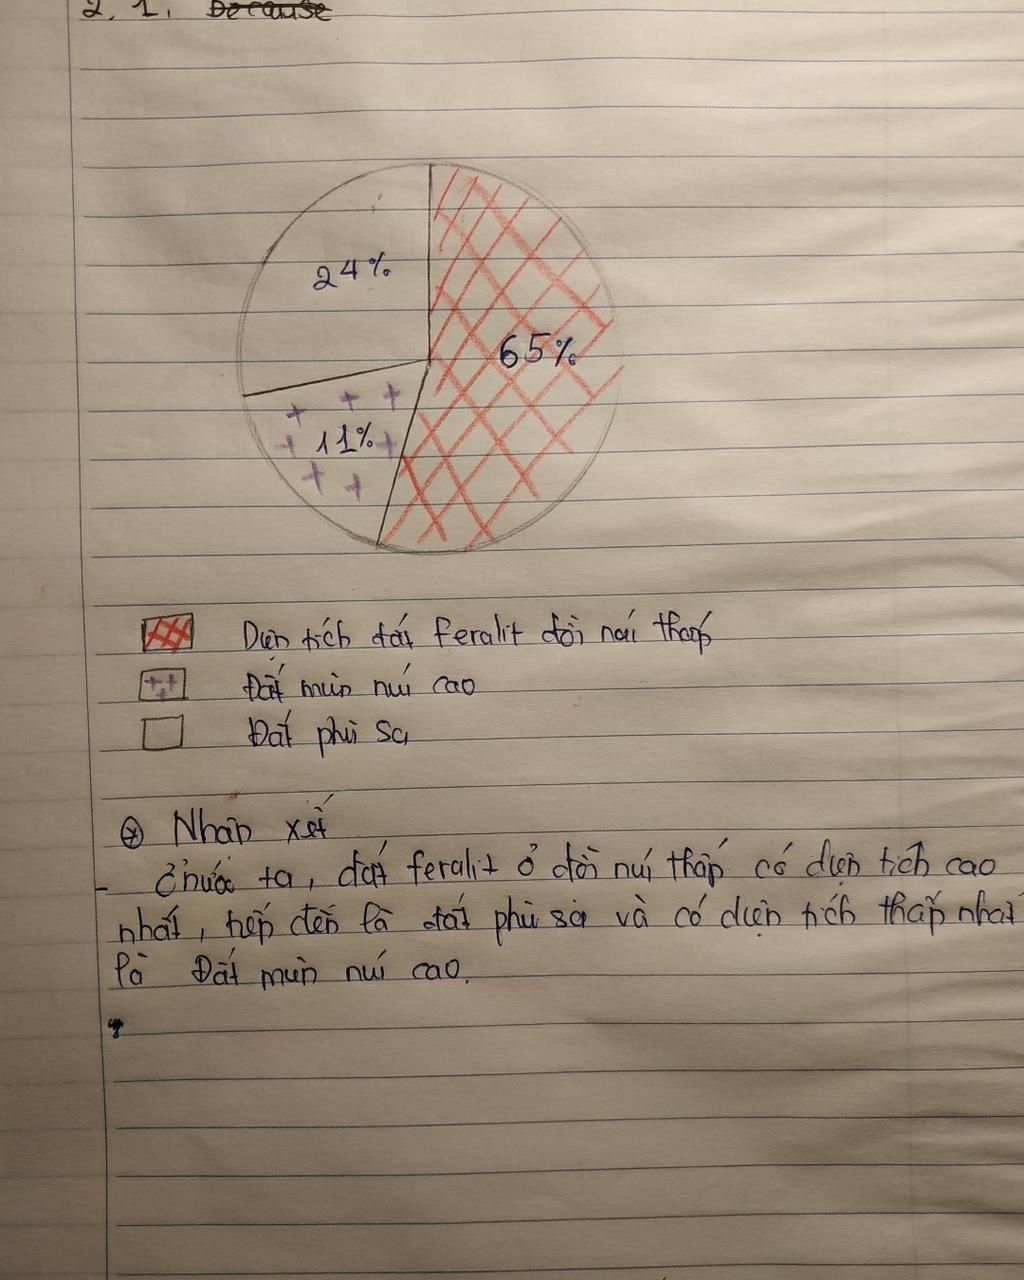 2. 1. Because
24%
65%
11%
Diện tích đất feralit đồi núi thấp
Đất mùn núi cao
Đất phù sa
Nhận xét
- Ở nước ta, đất feralit ở đồi núi thấp có diện tích cao
nhất, tiếp đến là đất phù sa và có diện tích thấp nhất
là Đất mùn núi cao.